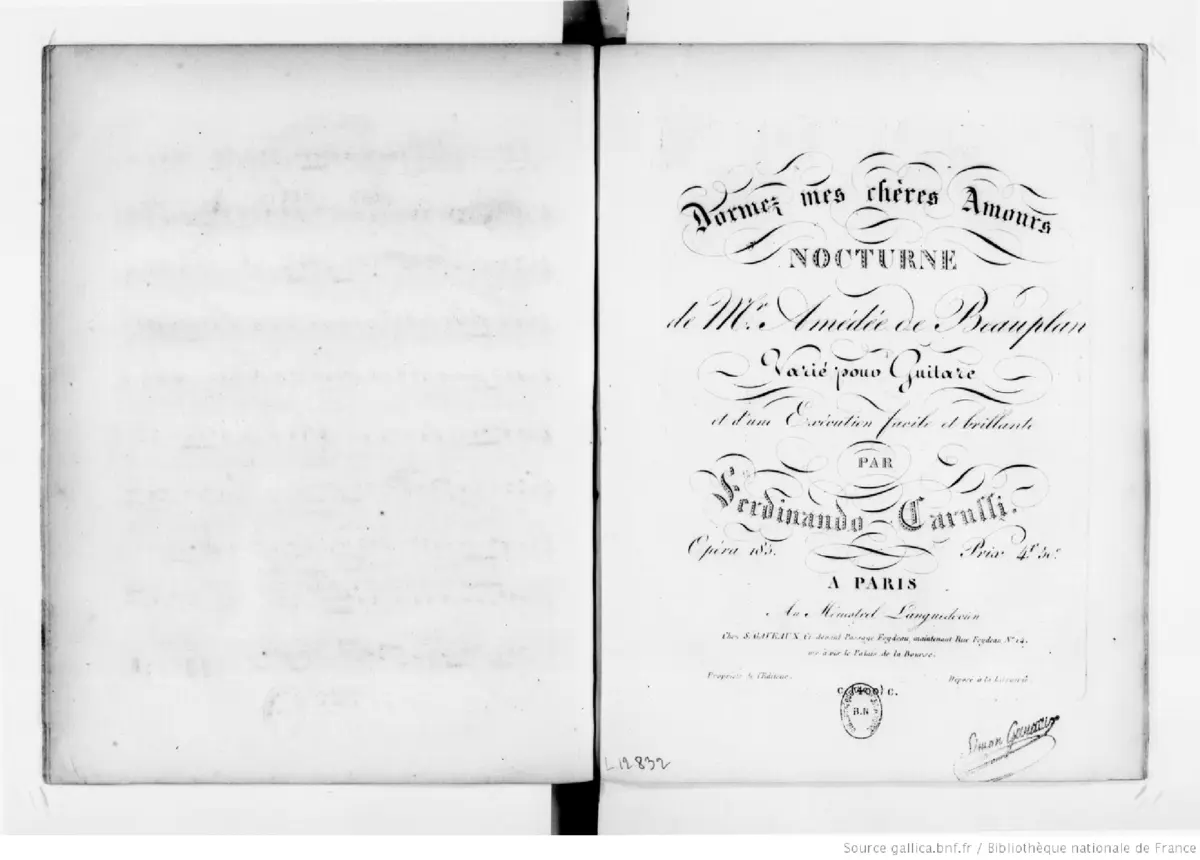 Dormez mes chères Amours
NOCTURNE
de Mr. Amédée de Beauplan
Varié pour Guitare
et d'une Exécution facile et brillante
PAR
Ferdinando Carulli.
Opéra 185. Prix 4f 50c
A PARIS
Au Ménestrel Languedocien
Chez S. GAVEAUX, Ci-devant Passage Feydeau, maintenant Rue Feydeau, No 14,
vis à vis le Palais de la Bourse.
Propriété de l'Editeur. Déposé à la Librairie
C. (400) C.
B.N
Simon Gaveaux
L12832
Source gallica.bnf.fr / Bibliothèque nationale de France